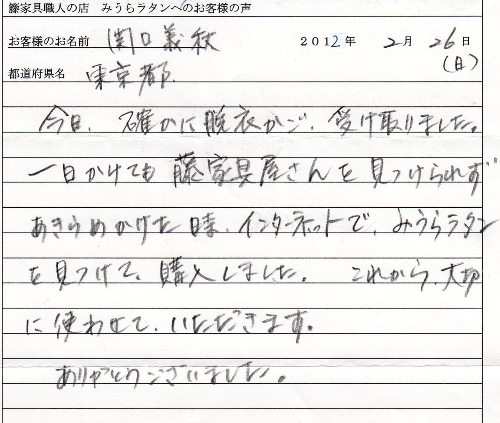 籐家具職人の店　みうらラタンへのお客様の声
お客様のお名前　関口義秋　2012年　2月　26日
(日)
都道府県名　東京都.
今日、確かに脱衣かご、受け取りました。
一日かけても藤家具屋さんを見つけられず
あきらめかけた時、インターネットで、みうらラタン
を見つけて、購入しました。　これから、大切
に使わせて、いただきます。
ありがとうございました。